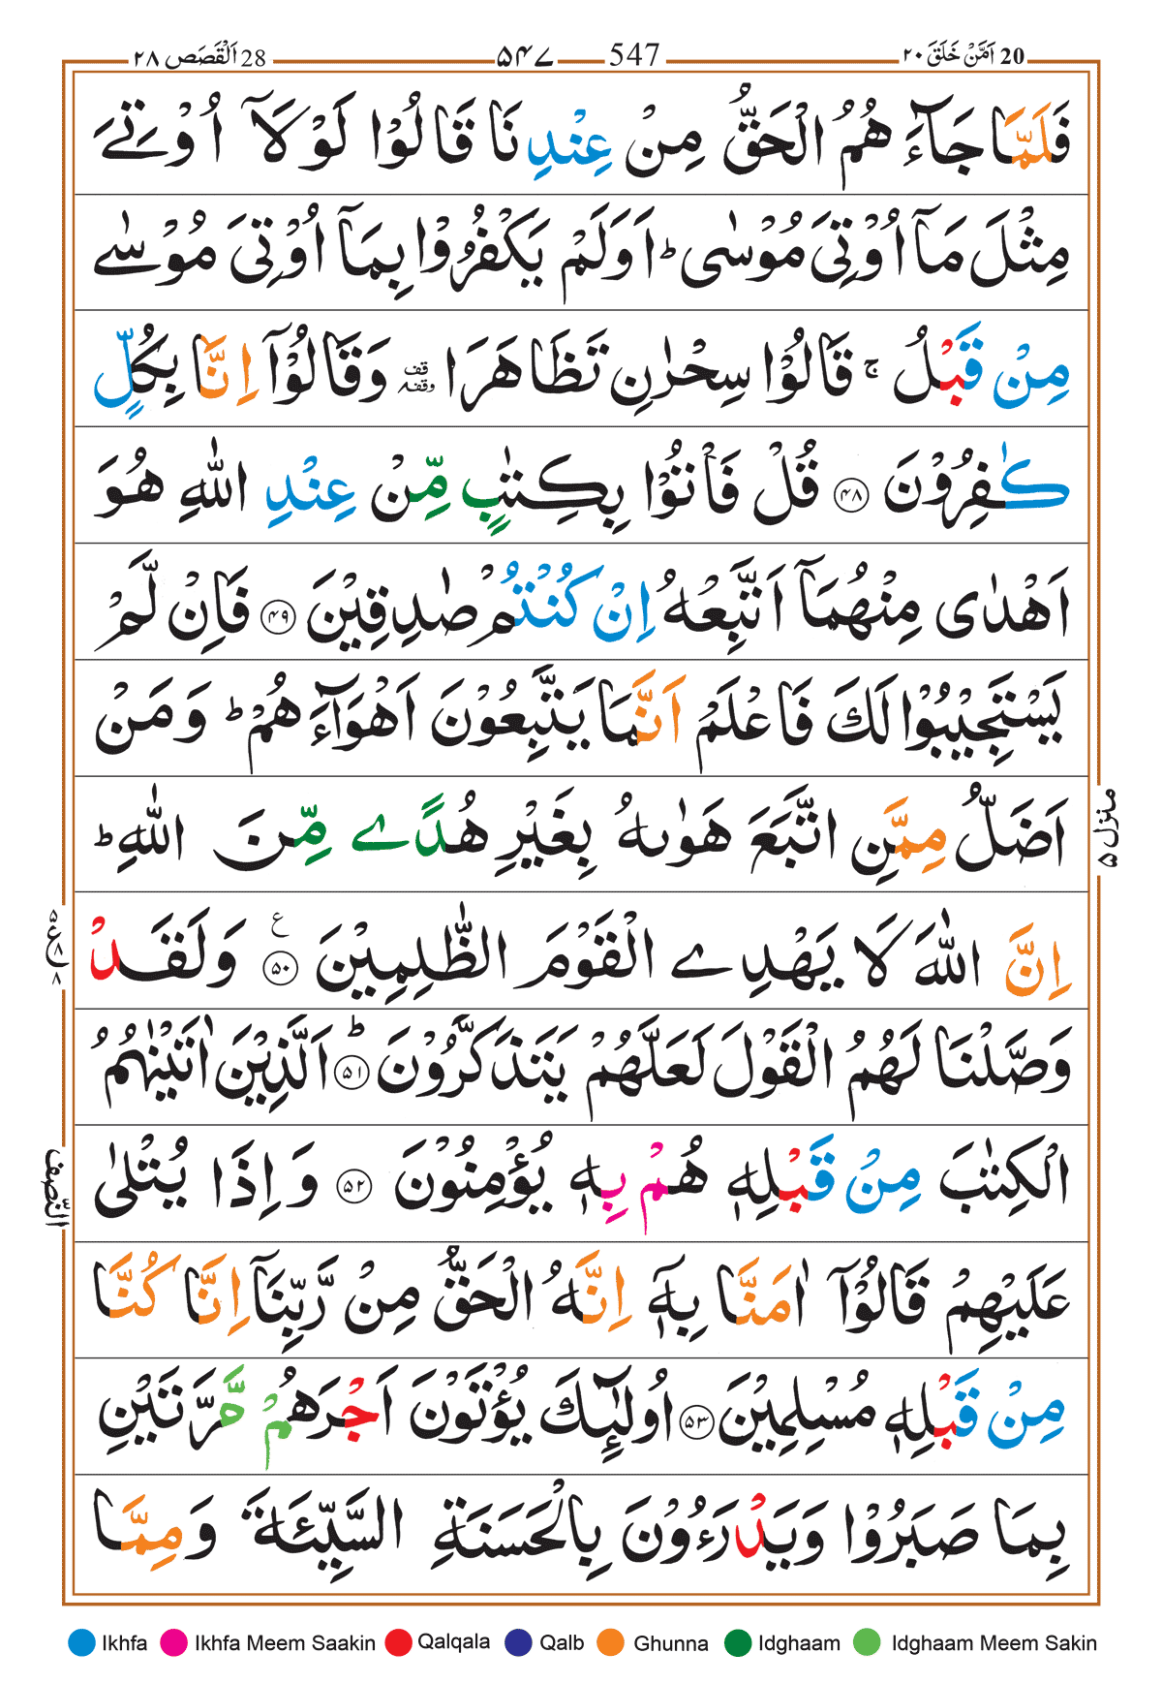 20 اَمَّنْ خَلَقَ ۲۰ 547 ۵۴۷ 28 اَلْقَصَص ۲۸
فَلَمَّا جَآءَ هُمُ الْحَقُّ مِنْ عِنْدِنَا قَالُوْا لَوْ لَاۤ اُوْتِیَ
مِثْلَ مَاۤ اُوْتِیَ مُوْسٰی ؕ اَوَلَمْ یَكْفُرُوْا بِمَاۤ اُوْتِیَ مُوْسٰی
مِنْ قَبْلُ ۚ قَالُوْا سِحْرٰنِ تَظَاهَرَا قف وقفه وَقَالُوْۤا اِنَّا بِكُلٍّ
كٰفِرُوْنَ ۴۸ قُلْ فَاْتُوْا بِكِتٰبٍ مِّنْ عِنْدِ اللّٰهِ هُوَ
اَهْدٰی مِنْهُمَاۤ اَتَّبِعْهُ اِنْ كُنْتُمْ صٰدِقِیْنَ ۴۹ فَاِنْ لَّمْ
یَسْتَجِیْبُوْا لَكَ فَاعْلَمْ اَنَّمَا یَتَّبِعُوْنَ اَهْوَآءَهُمْ ؕ وَمَنْ
اَضَلُّ مِمَّنِ اتَّبَعَ هَوٰىهُ بِغَیْرِ هُدًی مِّنَ اللّٰهِ ؕ
اِنَّ اللّٰهَ لَا یَهْدِی الْقَوْمَ الظّٰلِمِیْنَ ۵۰ ع وَلَقَدْ
وَصَّلْنَا لَهُمُ الْقَوْلَ لَعَلَّهُمْ یَتَذَكَّرُوْنَ ۵۱ ؕ اَلَّذِیْنَ اٰتَیْنٰهُمُ
الْكِتٰبَ مِنْ قَبْلِهٖ هُمْ بِهٖ یُؤْمِنُوْنَ ۵۲ وَاِذَا یُتْلٰی
عَلَیْهِمْ قَالُوْۤا اٰمَنَّا بِهٖۤ اِنَّهُ الْحَقُّ مِنْ رَّبِّنَاۤ اِنَّا كُنَّا
مِنْ قَبْلِهٖ مُسْلِمِیْنَ ۵۳ اُولٰٓئِكَ یُؤْتَوْنَ اَجْرَهُمْ مَّرَّتَیْنِ
بِمَا صَبَرُوْا وَیَدْرَءُوْنَ بِالْحَسَنَةِ السَّیِّئَةَ وَمِمَّا
منزل ۵
النّصف
Ikhfa Ikhfa Meem Saakin Qalqala Qalb Ghunna Idghaam Idghaam Meem Sakin